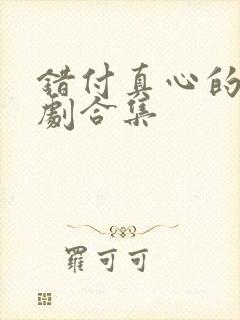 错付真心的
劇合集
羅可可